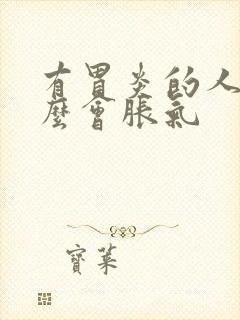 有胃炎的人
麼會脹氣
寶萊